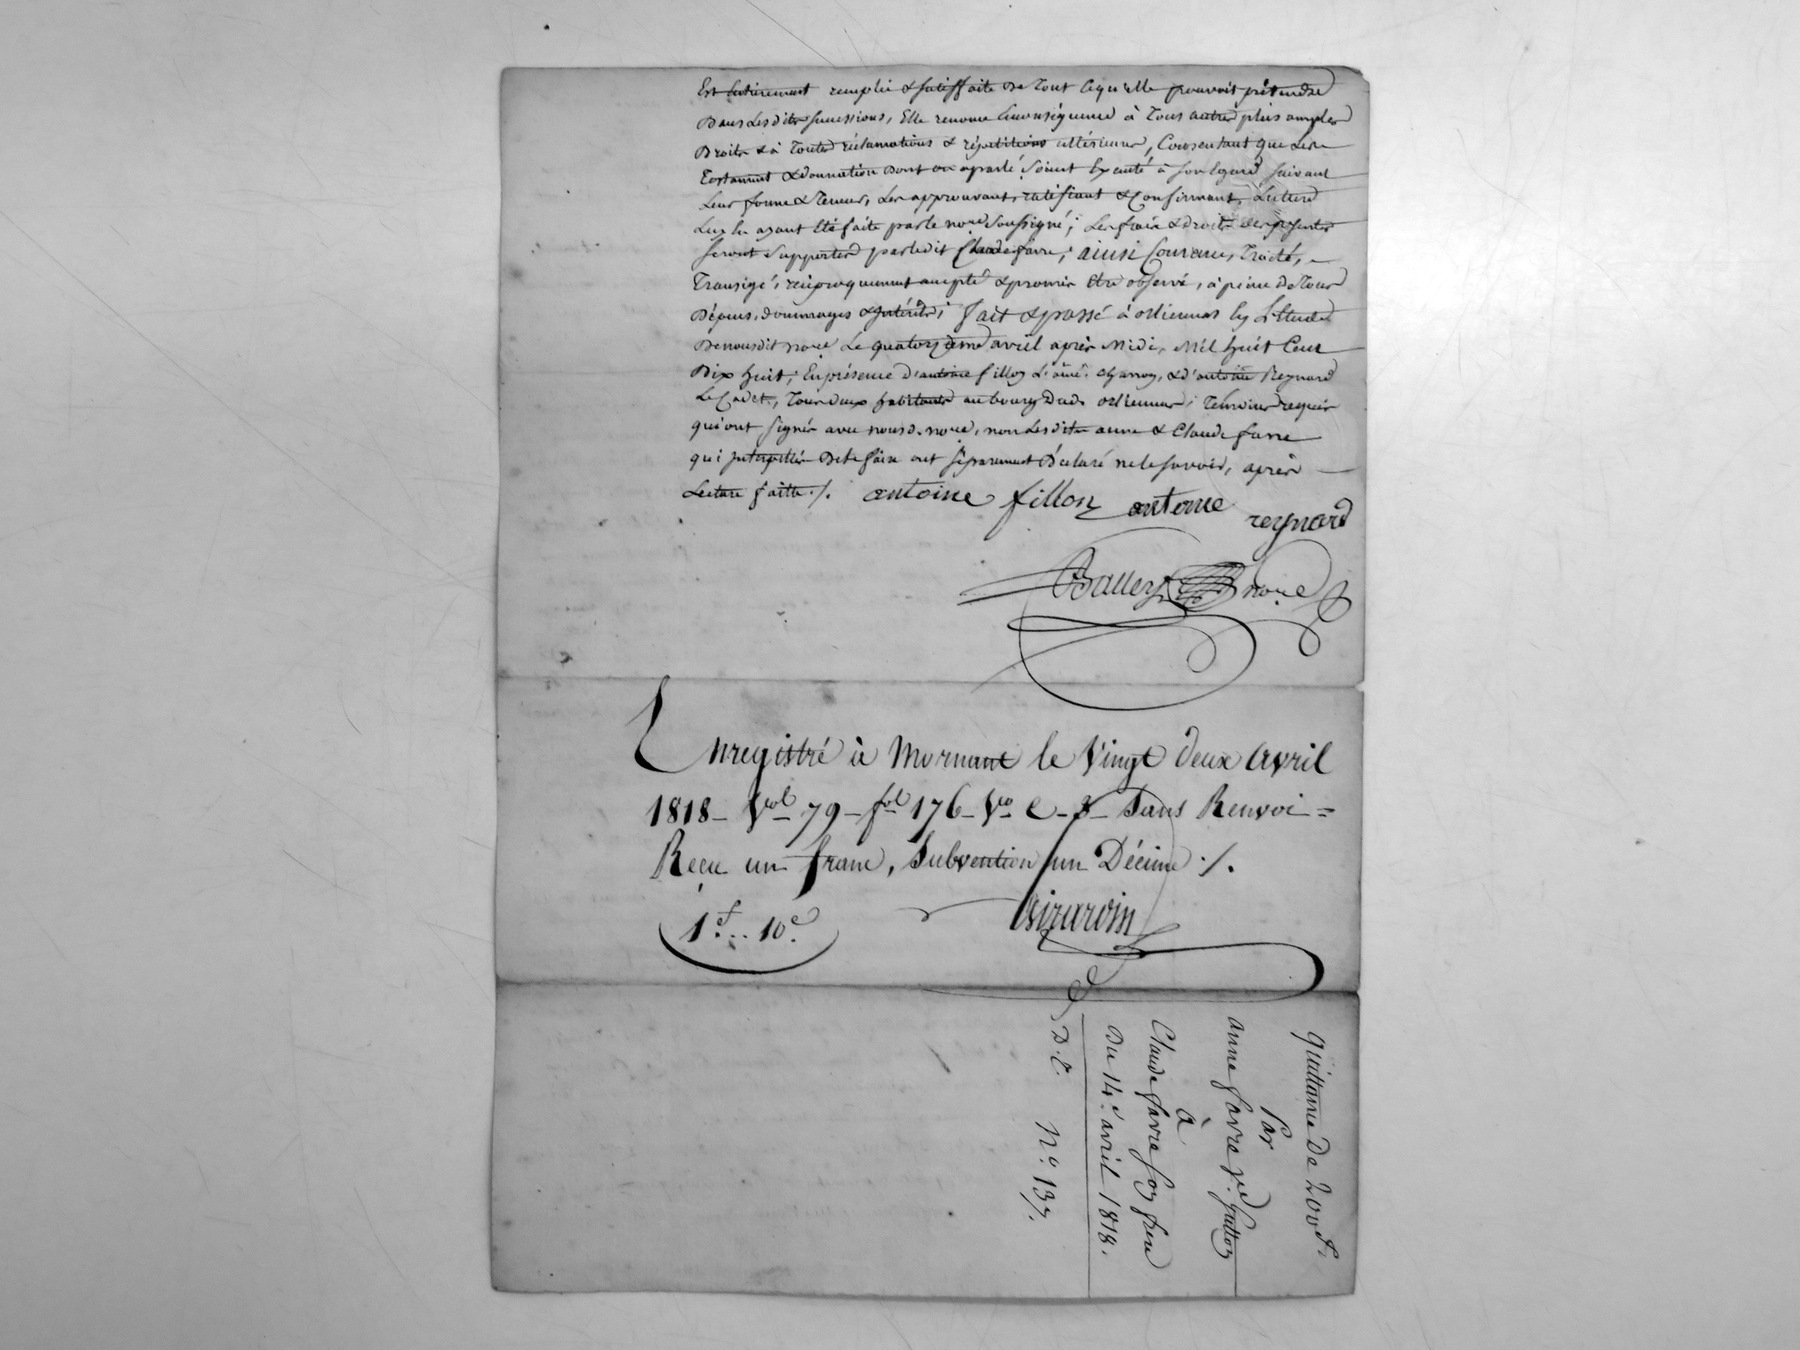 Est entierement remplie & satisffaite de tout cequ'elle pouvoit prétendre
Dans Lesdites successions, Elle renonce Enconséquence à Tous autres plus amples
Droits & à toutes réclamations & répétitions ultérieures, Consentant que Les
Testament & donnation dont on aparlé soient Exécuté à son Egard suivant
Leur forme & Teneur, Les approuvant, ratifiant & Confirmant, Lecture
Luy En ayant Eté faite par le nore soussigné; Les frais & droits des présentes
seront supportés par ledit Claude favre; ainsi Convenu, Traité,
Transigé, réciproquement accepté & promis Etre observé, à peine de Tous
Dépens, dommages & intérêts; fait & passé à orliennas Ey L'Etude
De nousdit nore Le quatorzieme avril après Midi, Mil huit Cent
Dix huit; En présence d'antoine fillon L'ainé, charron, & d'antoine Reynard
Le Cadet, Tous deux habitants au bourg dud. orliennas, Témoins requis
qui ont signés avec nousd. nore, non Lesdits anne & Claude favre
qui interpellés De le faire ont séparement Déclaré ne le savoir, après
Lecture faitte ./. antoine fillon antoine reynard
Balley nore
Enregistré à Mornant le Vingt deux Avril
1818 - Vol 79 - fol 176 - Vo C - 3 - Sans Renvoi =
Reçu un franc, Subvention un Décime ./.
1f.. 10c.
Girardin
quittance De 200f.
Par
anne favre ve. guttoy
à
Claude favre soy frere
Du 14e. avril 1818.
D. C. No. 137.